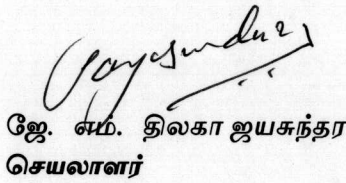 ஜே. எம். திலகா ஜயசுந்தர
செயலாளர்